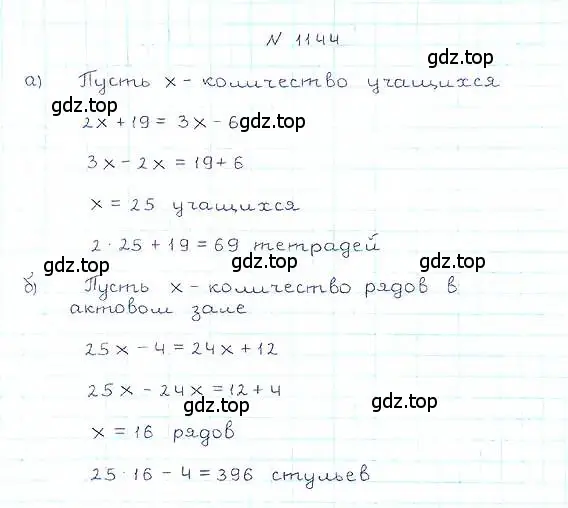 N 1144
gdz.top
а) Пусть x - количество учащихся
gdz.top
2x + 19 = 3x - 6 gdz.top
3x - 2x = 19 + 6
x = 25 учащихся
2 · 25 + 19 = 69 тетрадей
gdz.top gdz.top gdz.top
б) Пусть x - количество рядов в
актовом зале
25x - 4 = 24x + 12
25x - 24x = 12 + 4
gdz.top gdz.top
x = 16 рядов
25 · 16 - 4 = 396 стульев